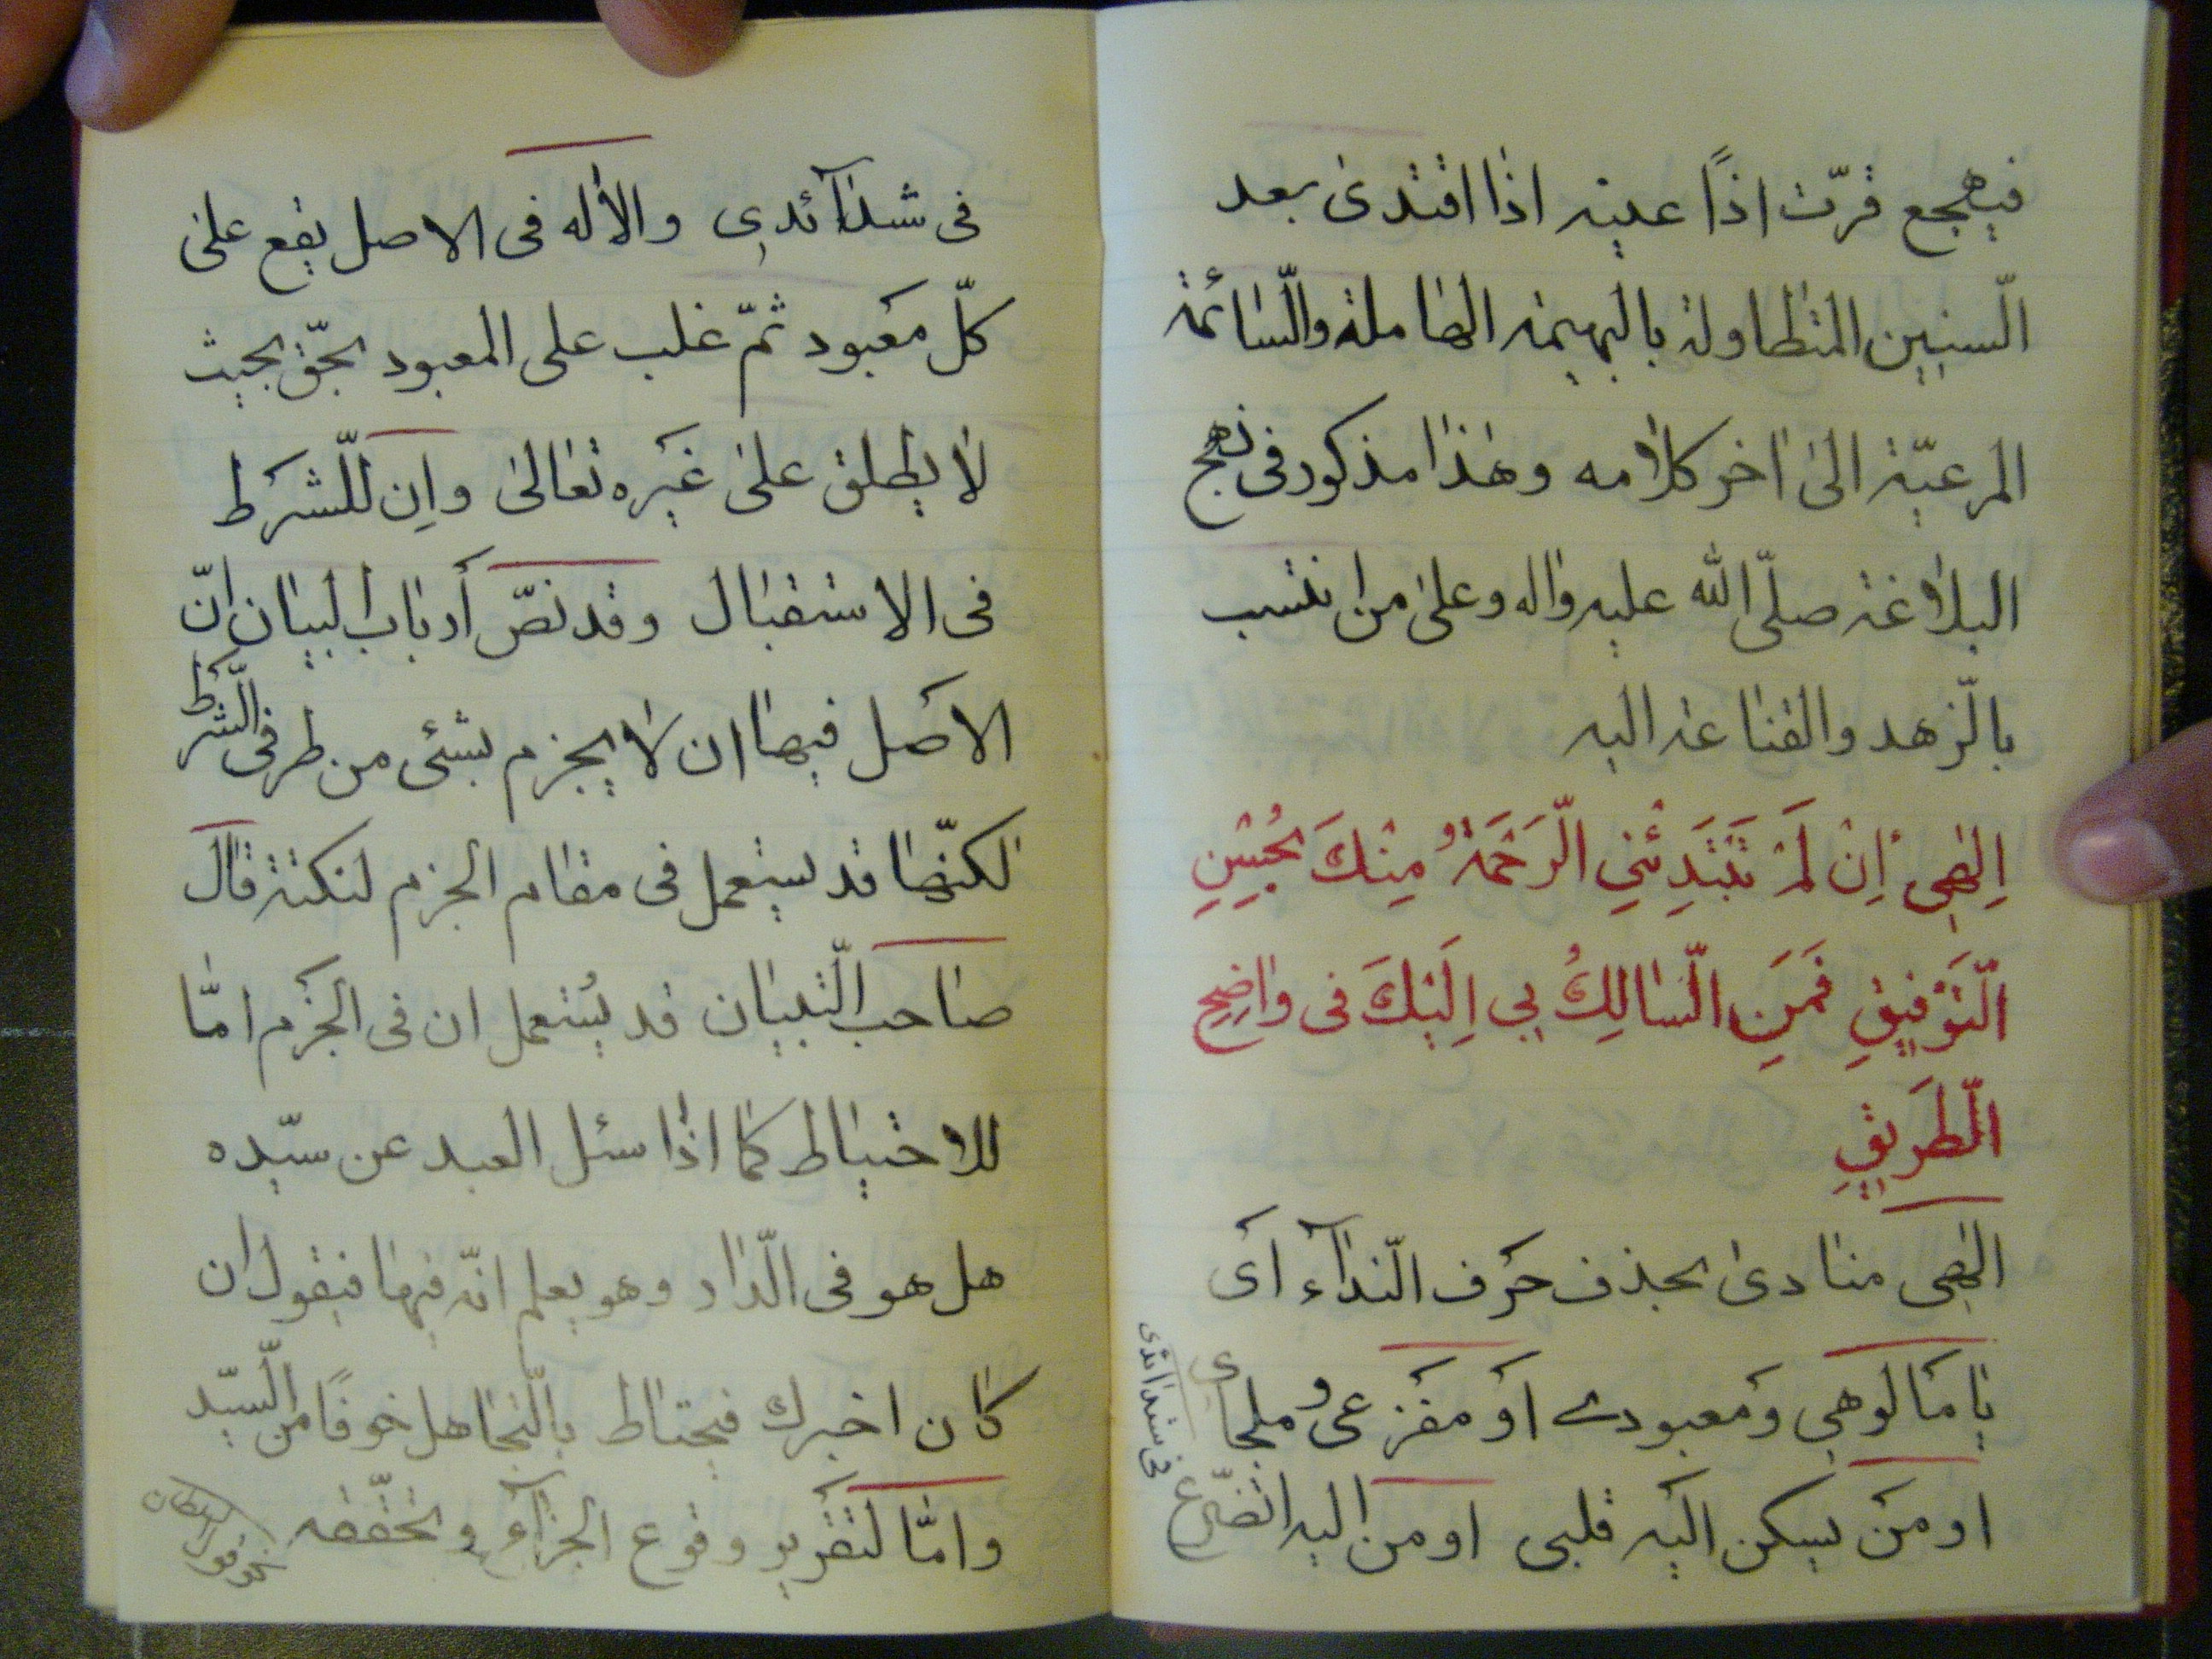 فيهجع قرّت اذًا عينه اذا اقتدى بعد
السّنين المتطاولة بالبهيمة الهاملة والسّائمة
المرعيّة الى اخر كلامه وهذا مذكور فى نهج
البلاغة صلّى الله عليه واله وعلى من انتسب
بالزّهد والقناعة اليه
اِلهِى اِنْ لَمْ تَبْتَدِئْنِي الرَّحْمَةُ مِنْكَ بِحُسْنِ
التَّوْفِيقِ فَمَنِ السّالِكُ بِي اِلَيْكَ فى واضِحِ
الطَّرِيقِ
الهى منادى بحذف حرف النّدآء اى
يا مالوهى ومعبودى او مفزعى وملجاى
او من يسكن اليه قلبى او من اليه اتضرّع
فى شدائدى
فى شدآئدى والاله فى الاصل يقع على
كلّ معبود ثمّ غلب على المعبود بحقّ بحيث
لا يطلق على غيره تعالى وان للشّرط
فى الاستقبال وقد نصّ أرباب البيان انّ
الاصل فيها ان لا يجزم بشئ من طرفى الشّرط
لكنّها قد يستعمل فى مقام الجزم لنكتة قال
صاحب التّبيان قد يستعمل ان فى الجزم امّا
للاحتياط كما اذا سئل العبد عن سيّده
هل هو فى الدّار وهو يعلم انّه فيها فيقول ان
كان اخبرك فيحتاط بالتّجاهل خوفًا من السّيّد
وامّا لتقرير وقوع الجزآء وتحقّقه